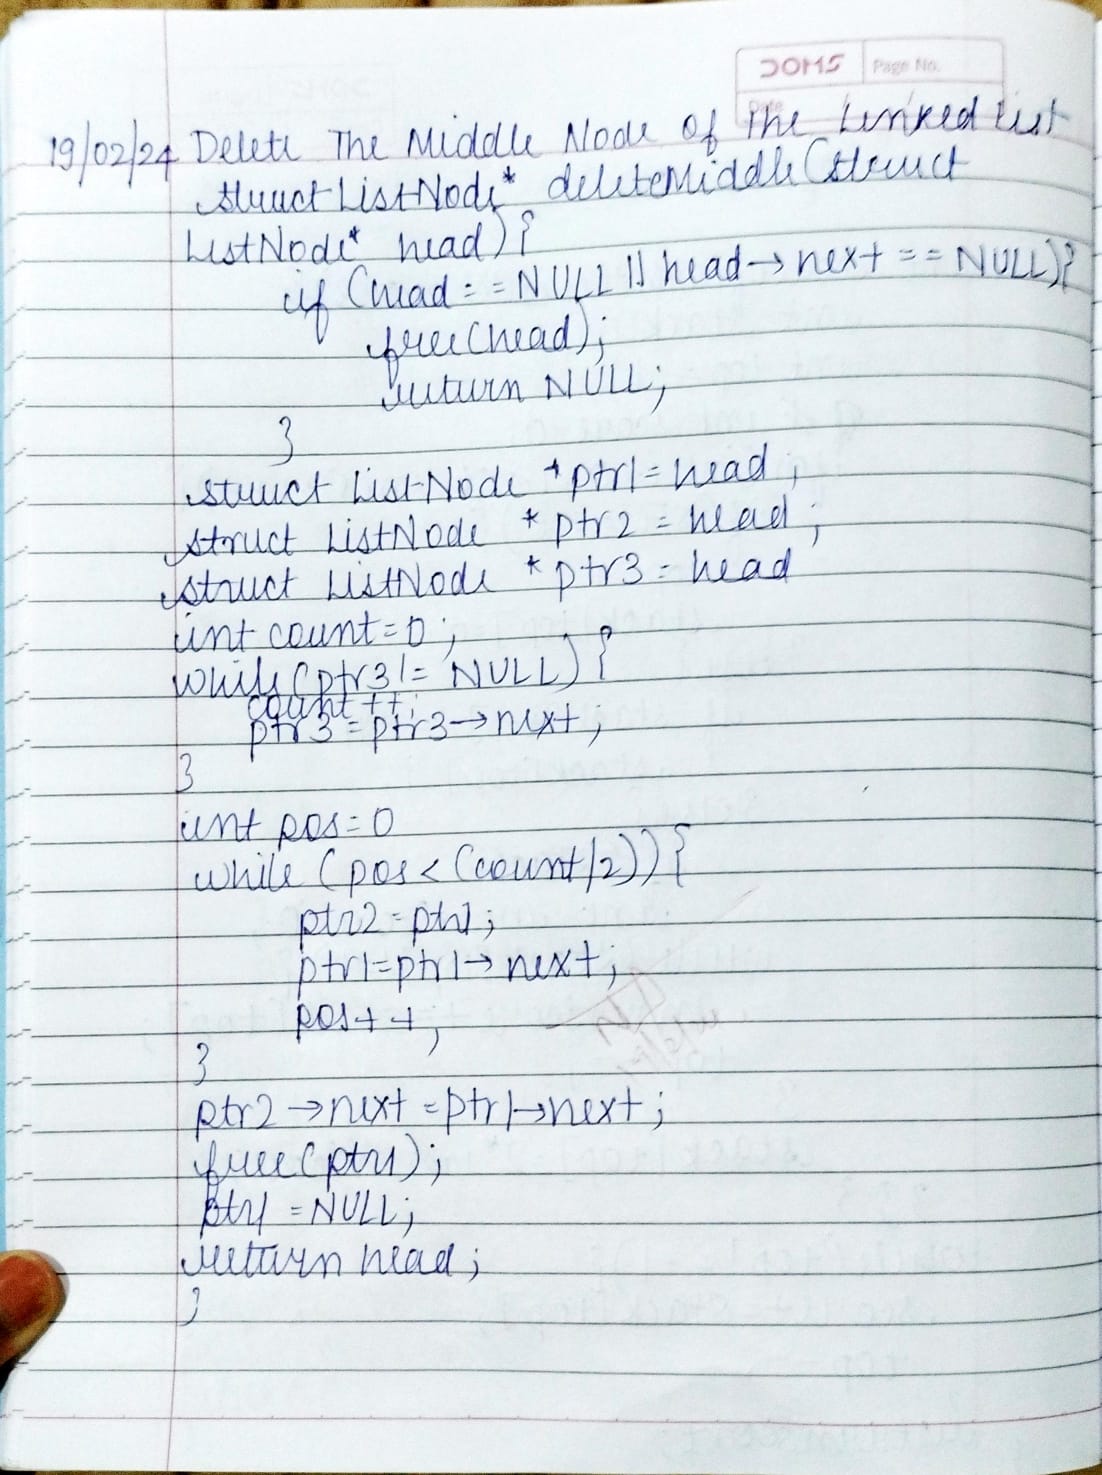 DOMS Page No.
Date
19/02/24 Delete The Middle Node of The Linked List
struct ListNode* deleteMiddle(struct
ListNode* head){
if (head == NULL || head→next == NULL){
free(head);
return NULL;
}
struct ListNode *ptr1=head;
struct ListNode *ptr2=head;
struct ListNode *ptr3=head
int count=0;
while(ptr3!=NULL){
count++;
ptr3=ptr3→next;
}
int pos=0
while (pos<(count/2)){
ptr2=ptr1;
ptr1=ptr1→next;
pos++;
}
ptr2→next=ptr1→next;
free(ptr1);
ptr1=NULL;
return head;
}